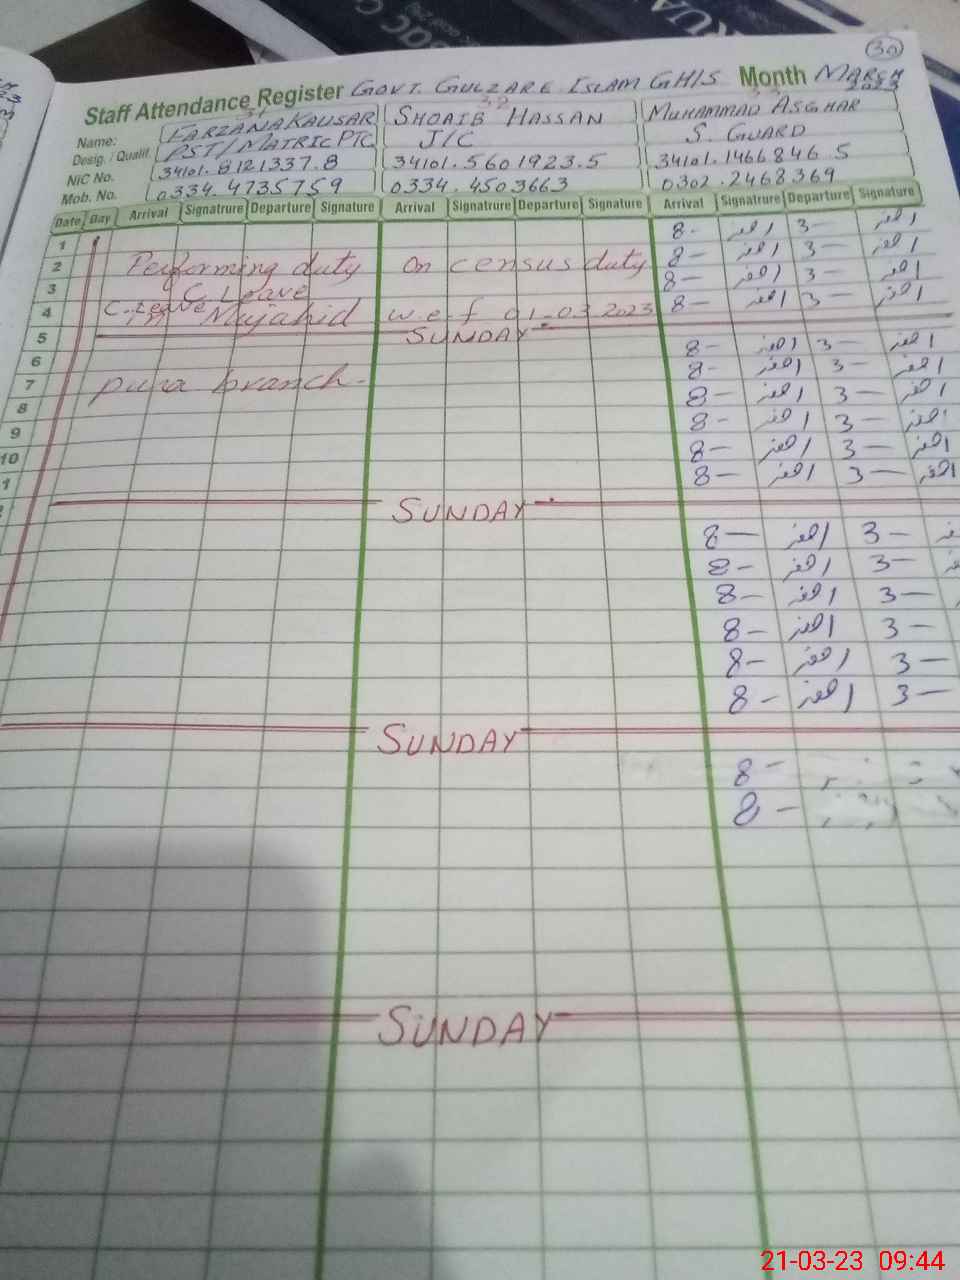 30
Staff Attendance Register GOVT. GULZARE ISLAM GHIS Month MARCH 2023
31 32 33
Name: FARZANA KAUSAR SHOAIB HASSAN MUHAMMAD ASGHAR
Desig. / Qualif. PST/MATRIC PTC J/C S. GUARD
NIC No. 34101.8121337.8 34101.5601923.5 34101.1466846.5
Mob. No. 0334.4735759 0334.4503663 0302.2468369
Date Day Arrival Signatrure Departure Signature Arrival Signatrure Departure Signature Arrival Signatrure Departure Signature
1 8- اصغر 3- اصغر
2 Performing duty On census duty 8- اصغر 3- اصغر
3 C. Leave 8- اصغر 3- اصغر
4 C. Leave in Mujahid w.e.f 01-03-2023 8- اصغر 3- اصغر
5 SUNDAY
6 8- اصغر 3- اصغر
7 pura branch. 8- اصغر 3- اصغر
8 8- اصغر 3- اصغر
9 8- اصغر 3- اصغر
10 8- اصغر 3- اصغر
1 8- اصغر 3- اصغر
SUNDAY
8- اصغر 3-
8- اصغر 3-
8- اصغر 3-
8- اصغر 3-
8- اصغر 3-
8- اصغر 3-
SUNDAY
8-
8-
SUNDAY
21-03-23 09:44